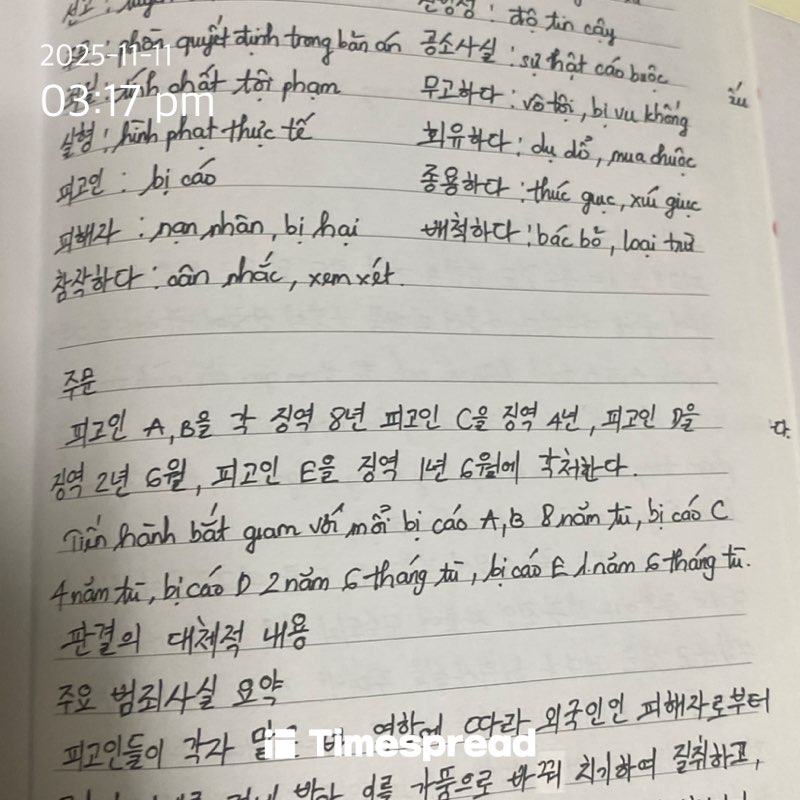 선고 :
신빙성 : độ tin cậy
phần quyết định trong bản án
공소사실 : sự thật cáo buộc
tính chất tội phạm
무고하다 : vô tội, bị vu khống
실형 : hình phạt thực tế
회유하다 : dụ dỗ, mua chuộc
피고인 : bị cáo
종용하다 : thúc giục, xúi giục
피해자 : nạn nhân, bị hại
배척하다 : bác bỏ, loại trừ
참작하다 : cân nhắc, xem xét.
2025-11-11
03:17 pm
주문
피고인 A, B을 각 징역 8년 피고인 C을 징역 4년, 피고인 D을
징역 2년 6월, 피고인 E을 징역 1년 6월에 각처한다.
Tiến hành bắt giam với mỗi bị cáo A, B 8 năm tù, bị cáo C
4 năm tù, bị cáo D 2 năm 6 tháng tù, bị cáo E 1 năm 6 tháng tù.
판결의 대체적 내용
주요 범죄사실 요약
피고인들이 각자 맡은 바 역할에 따라 외국인인 피해자로부터
받아 이를 가품으로 바꿔 치기하여 질취하고,
Timespread
다.